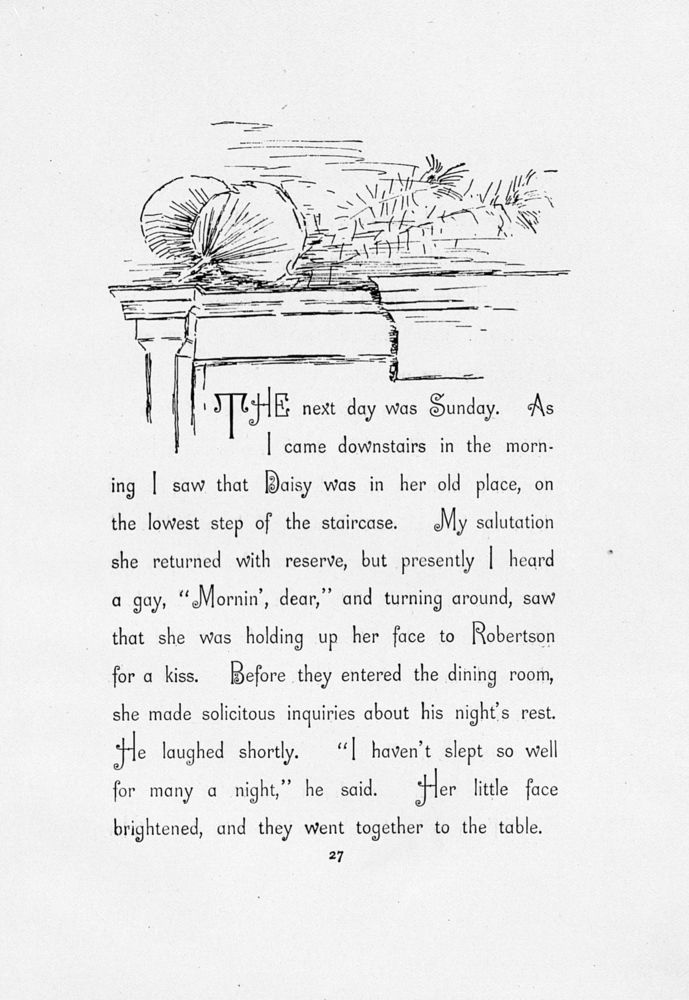 THE next day was Sunday. As
I came downstairs in the morn-
ing I saw that Daisy was in her old place, on
the lowest step of the staircase. My salutation
she returned with reserve, but presently I heard
a gay, “Mornin’, dear,” and turning around, saw
that she was holding up her face to Robertson
for a kiss. Before they entered the dining room,
she made solicitous inquiries about his night’s rest.
He laughed shortly. “I haven’t slept so well
for many a night,” he said. Her little face
brightened, and they went together to the table.
27